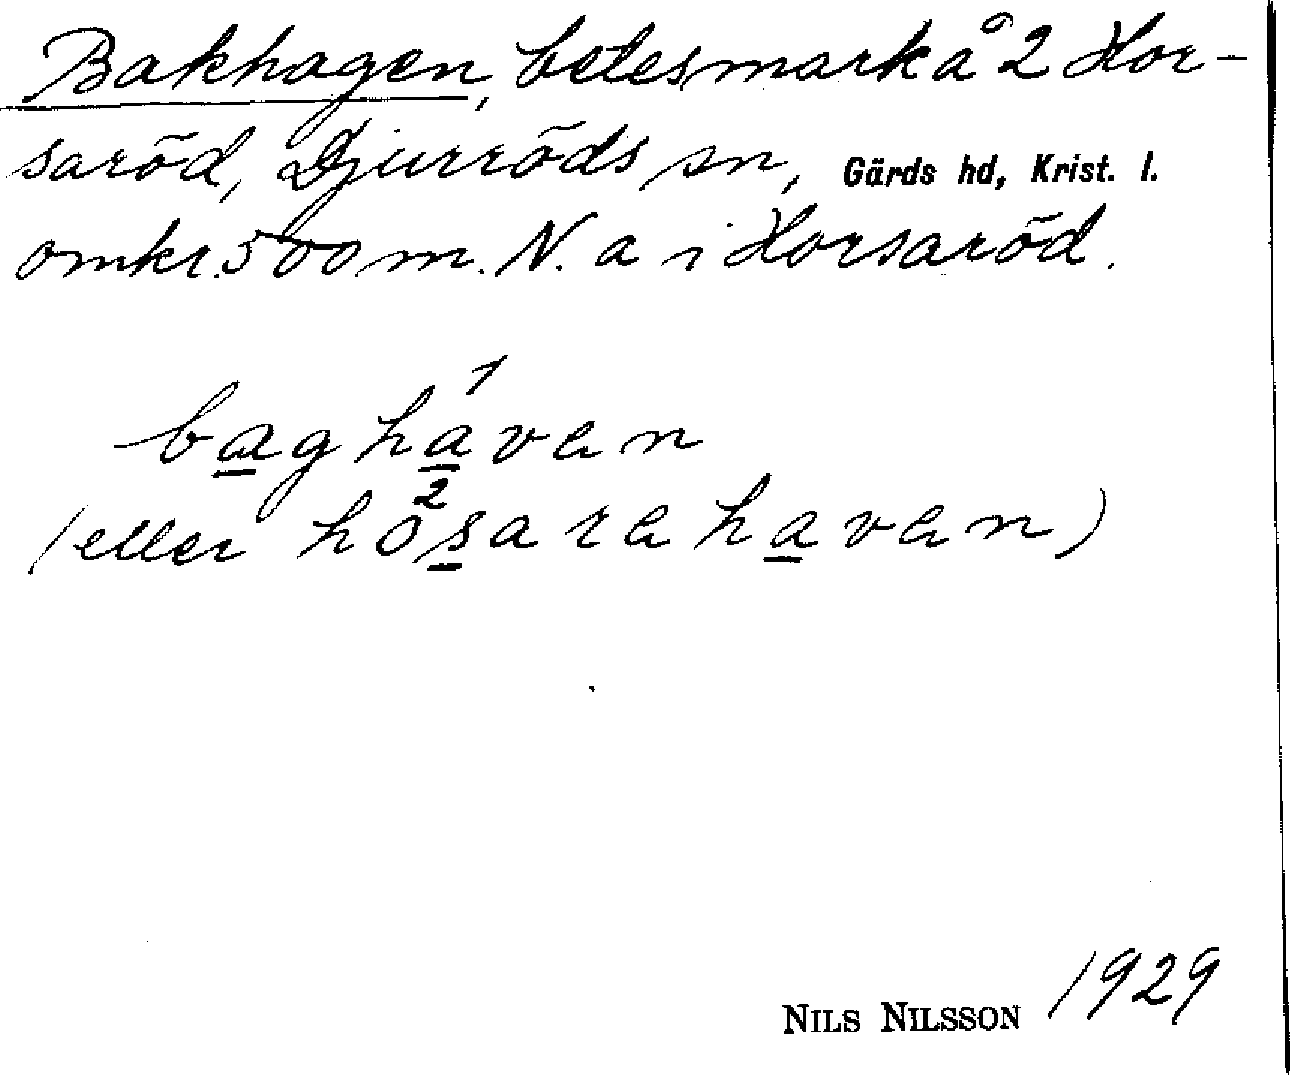 Bakhagen, betesmark å 2 Hor-
saröd, Djurröds sn, Gärds hd, Krist. l.
omkr. 500 m. N. a i Horsaröd.
baghávan
(eller hosarahavan)
NILS NILSSON 1929